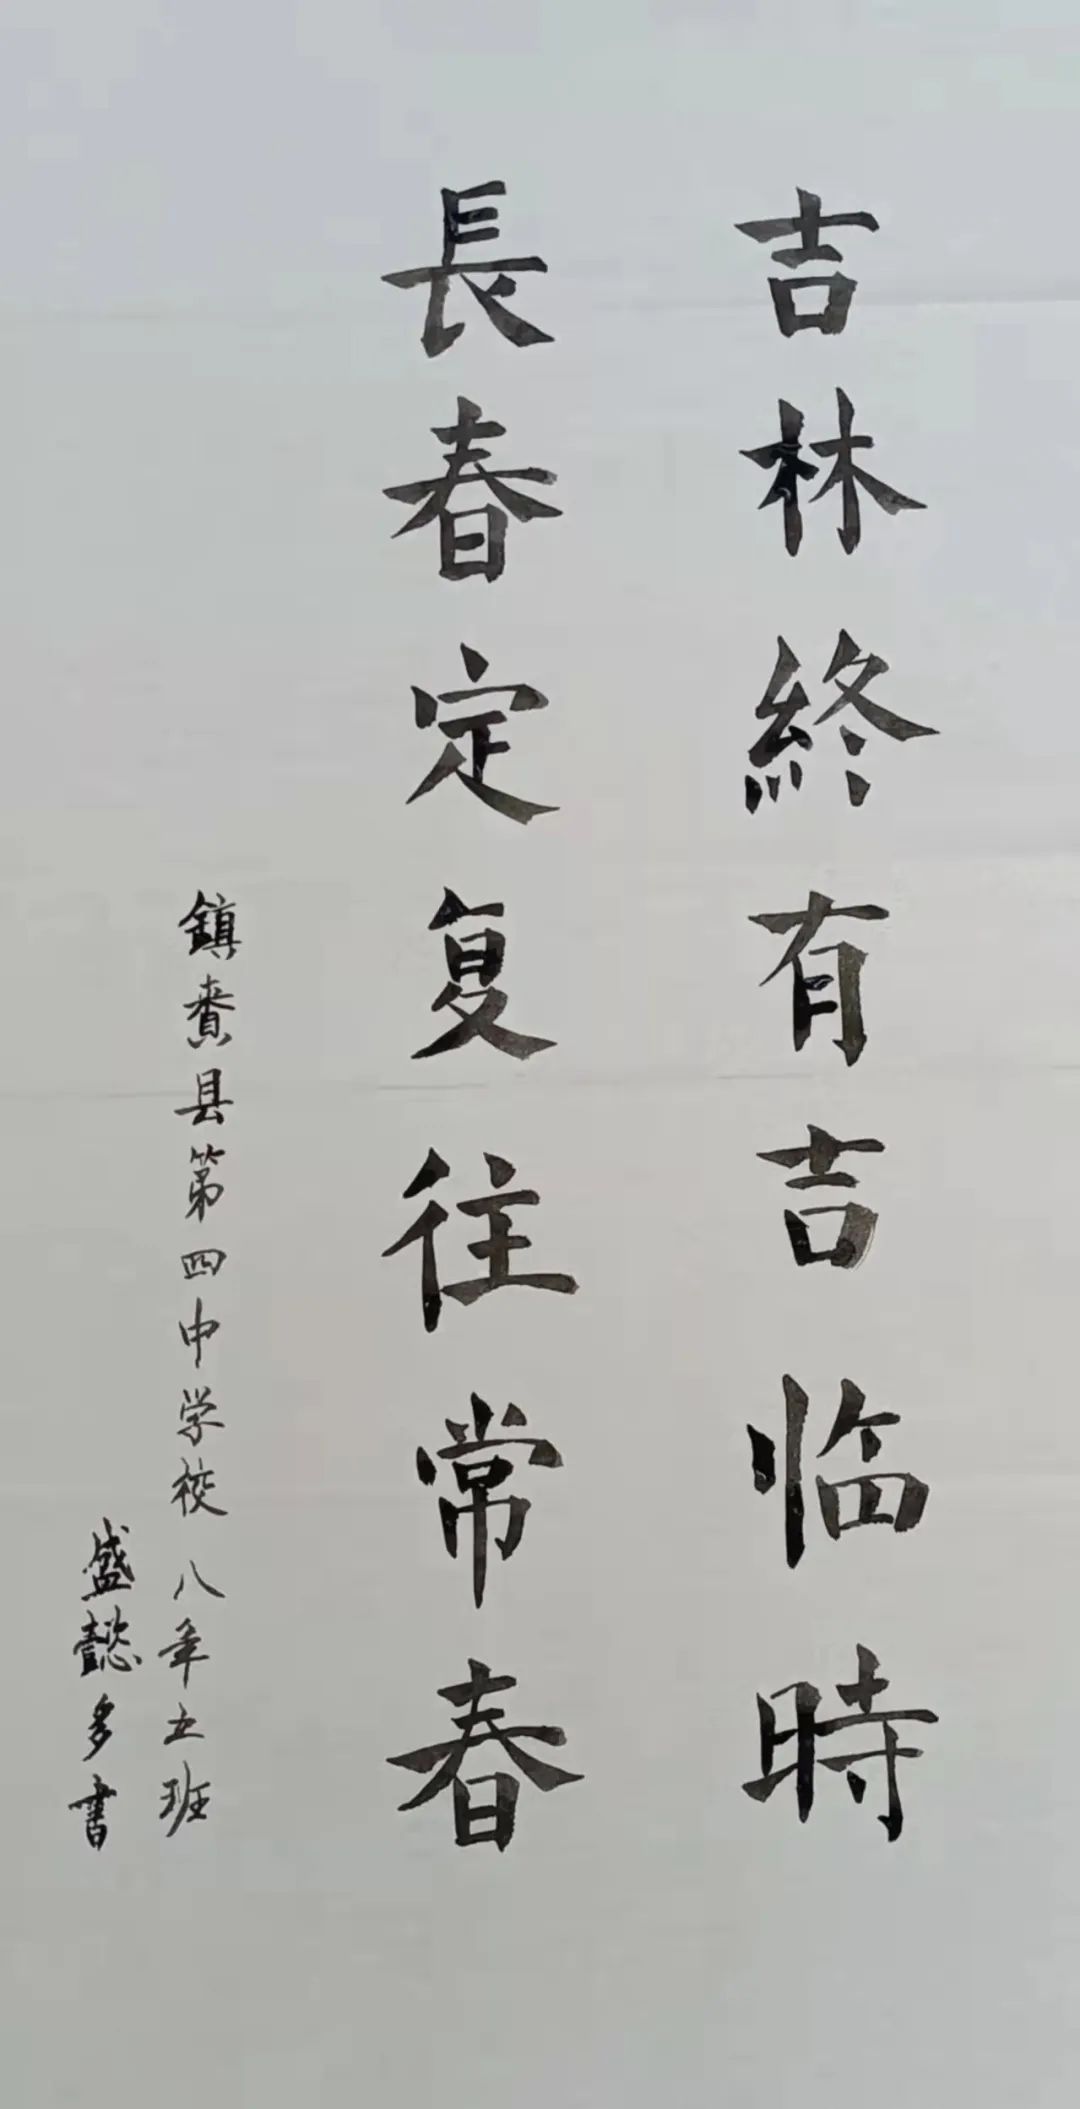 吉林終有吉临時
長春定复往常春
鎮賚县第四中学校 八年五班
盛懿多書